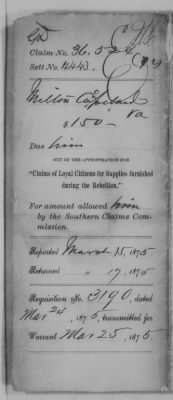 Claim No. 36.524
Sett No. 4443.
Milton Copeland
$150–
Due him
OUT OF THE APPROPRIATION FOR
"Claims of Loyal Citizens for Supplies furnished
during the Rebellion."
For amount allowed him
by the Southern Claims Com-
mission.
Reported March 15, 1875
Returned " 17, 1875
Requisition No. 3190, dated
Mar 24, 1875, transmitted for
Warrant Mar 25, 1875